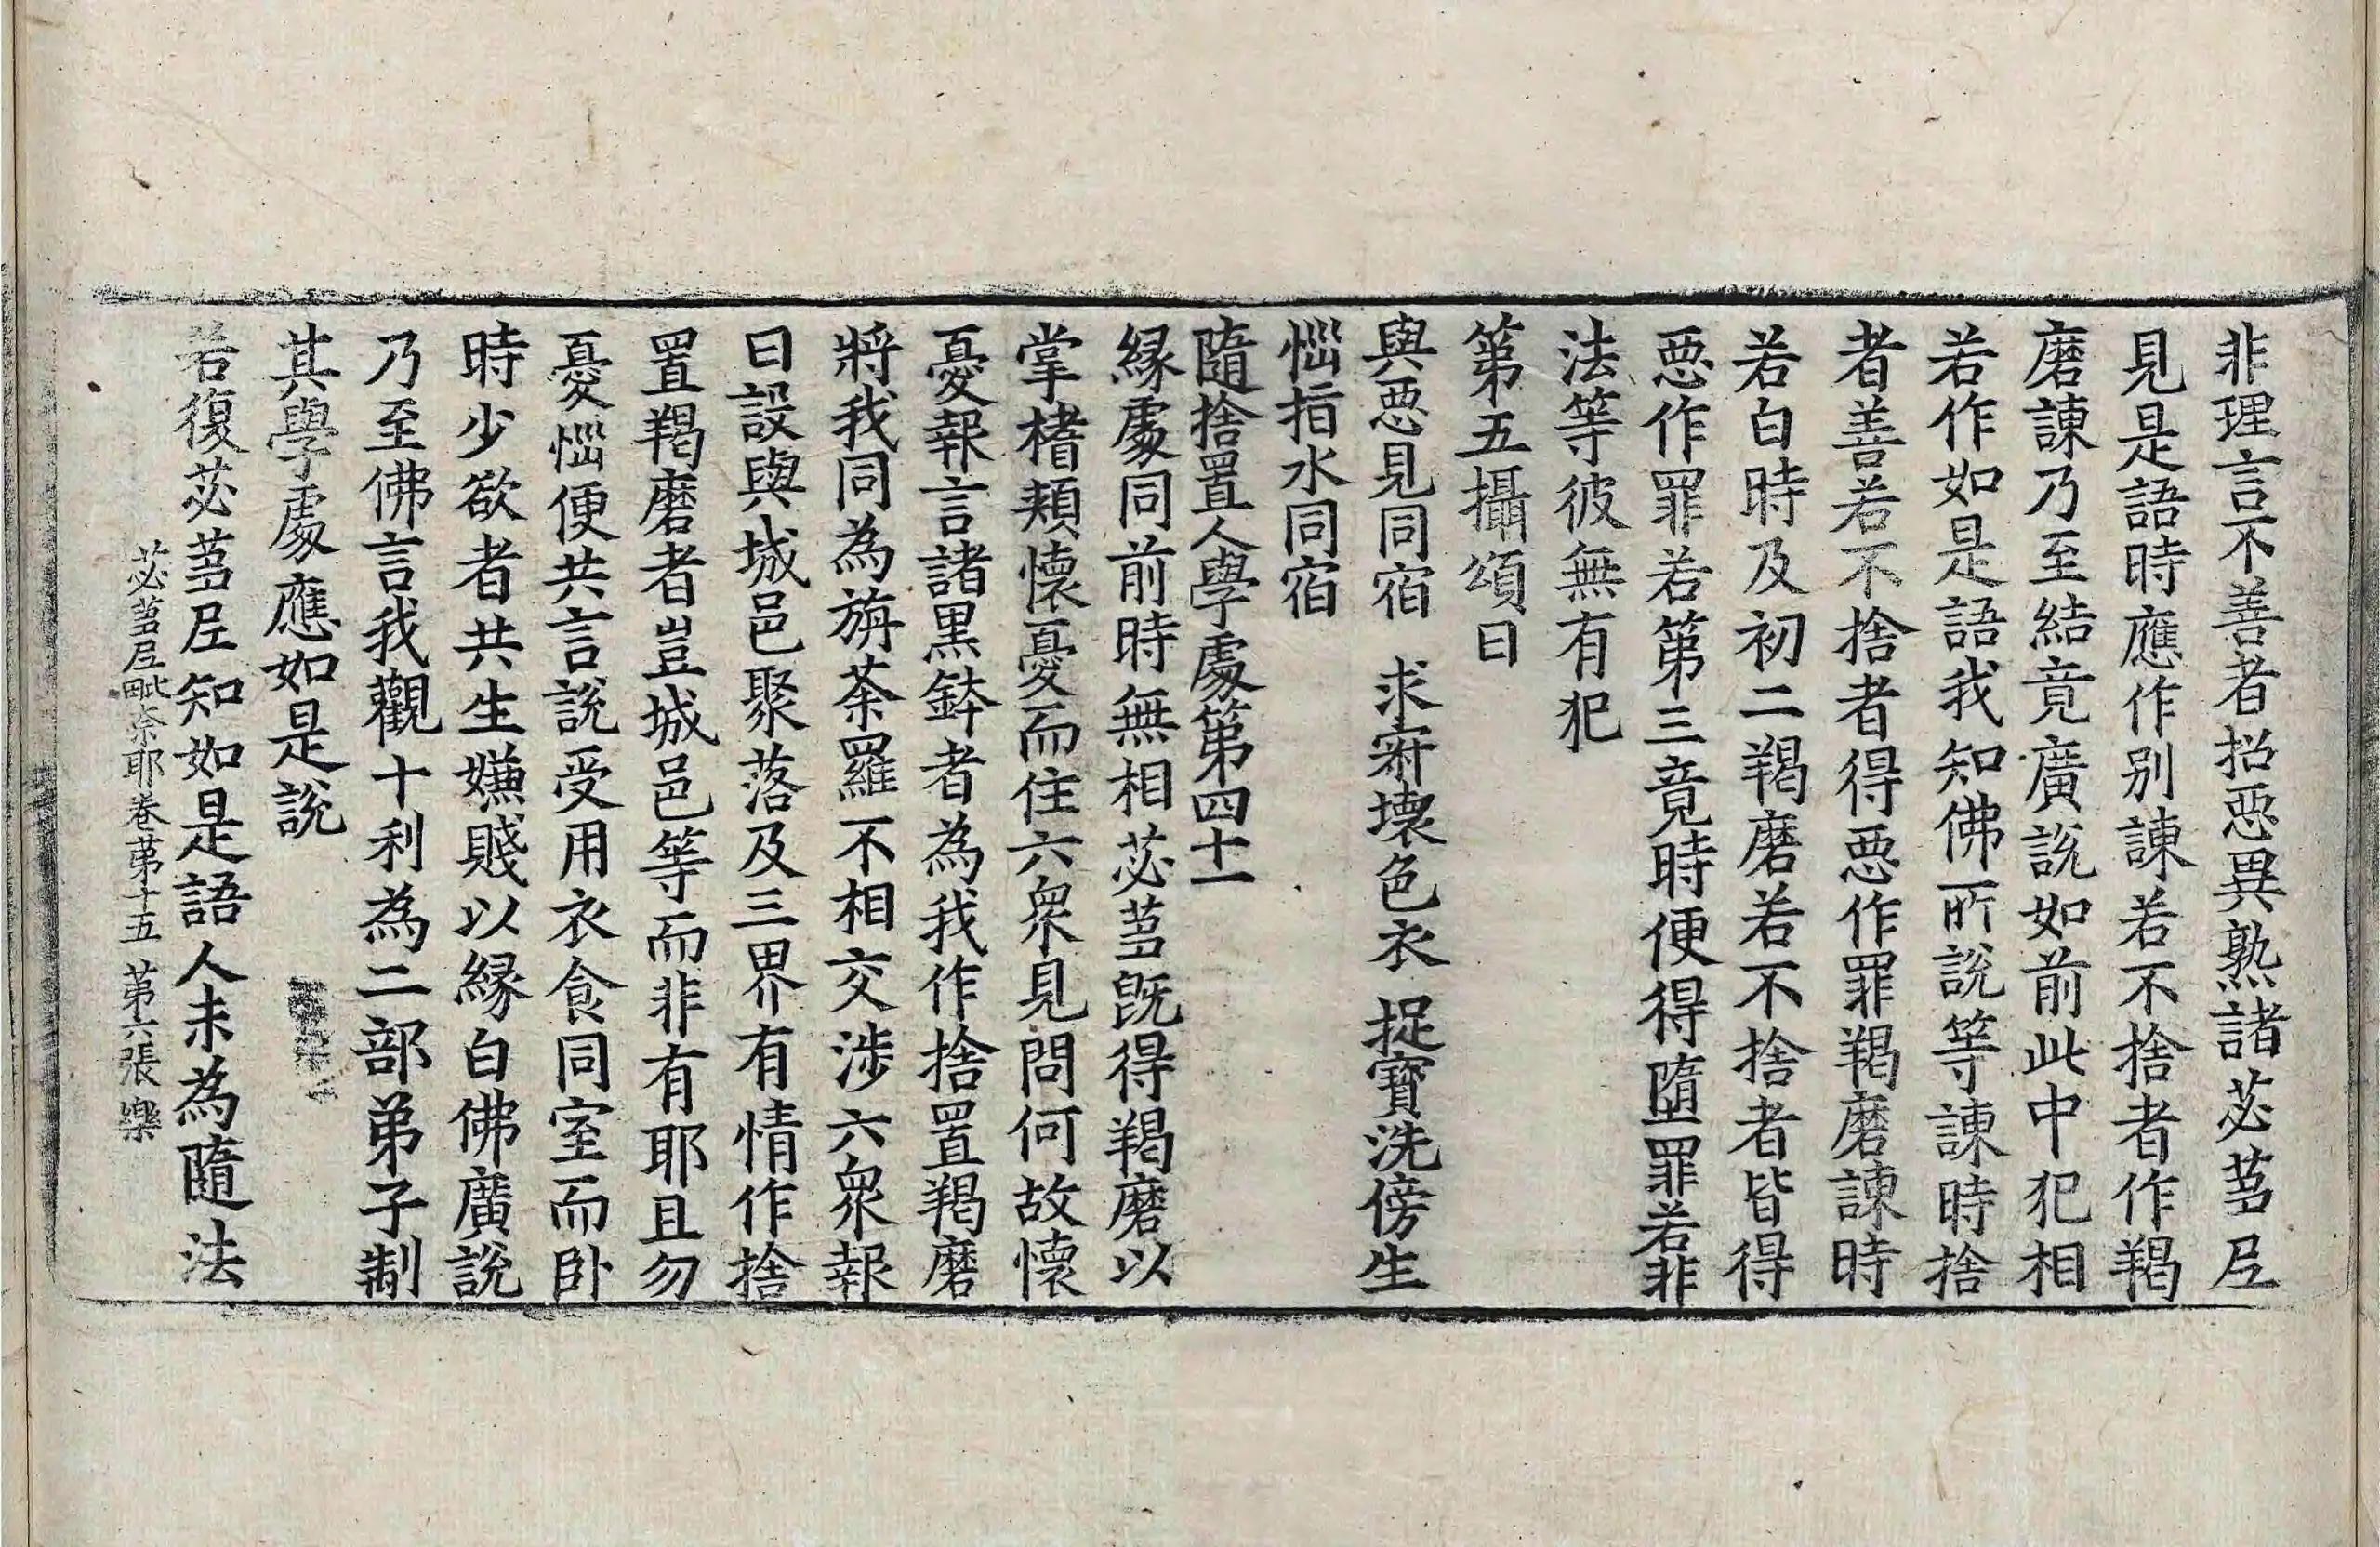 非理言不善者招惡異熟諸苾芻尼
見是語時應作別諫若不捨者作羯
磨諫乃至結竟廣說如前此中犯相
若作如是語我知佛所說等諫時捨
者善若不捨者得惡作罪羯磨諫時
若白時及初二羯磨若不捨者皆得
惡作罪若第三竟時便得墮罪若非
法等彼無有犯
第五攝頌曰
與惡見同宿　求寂壞色衣　捉寶洗傍生
惱指水同宿
隨捨置人學處第四十一
緣處同前時無相苾芻旣得羯磨以
掌榰頰懷憂而住六衆見問何故懷
憂報言諸黑鉢者為我作捨置羯磨
將我同為旃荼羅不相交涉六衆報
曰設與城邑聚落及三界有情作捨
置羯磨者豈城邑等而非有耶且勿
憂惱便共言說受用衣食同室而卧
時少欲者共生嫌賤以緣白佛廣說
乃至佛言我觀十利為二部弟子制
其學處應如是說
若復苾芻尼知如是語人未為隨法
苾芻尼毗奈耶卷第十五　第六張　樂